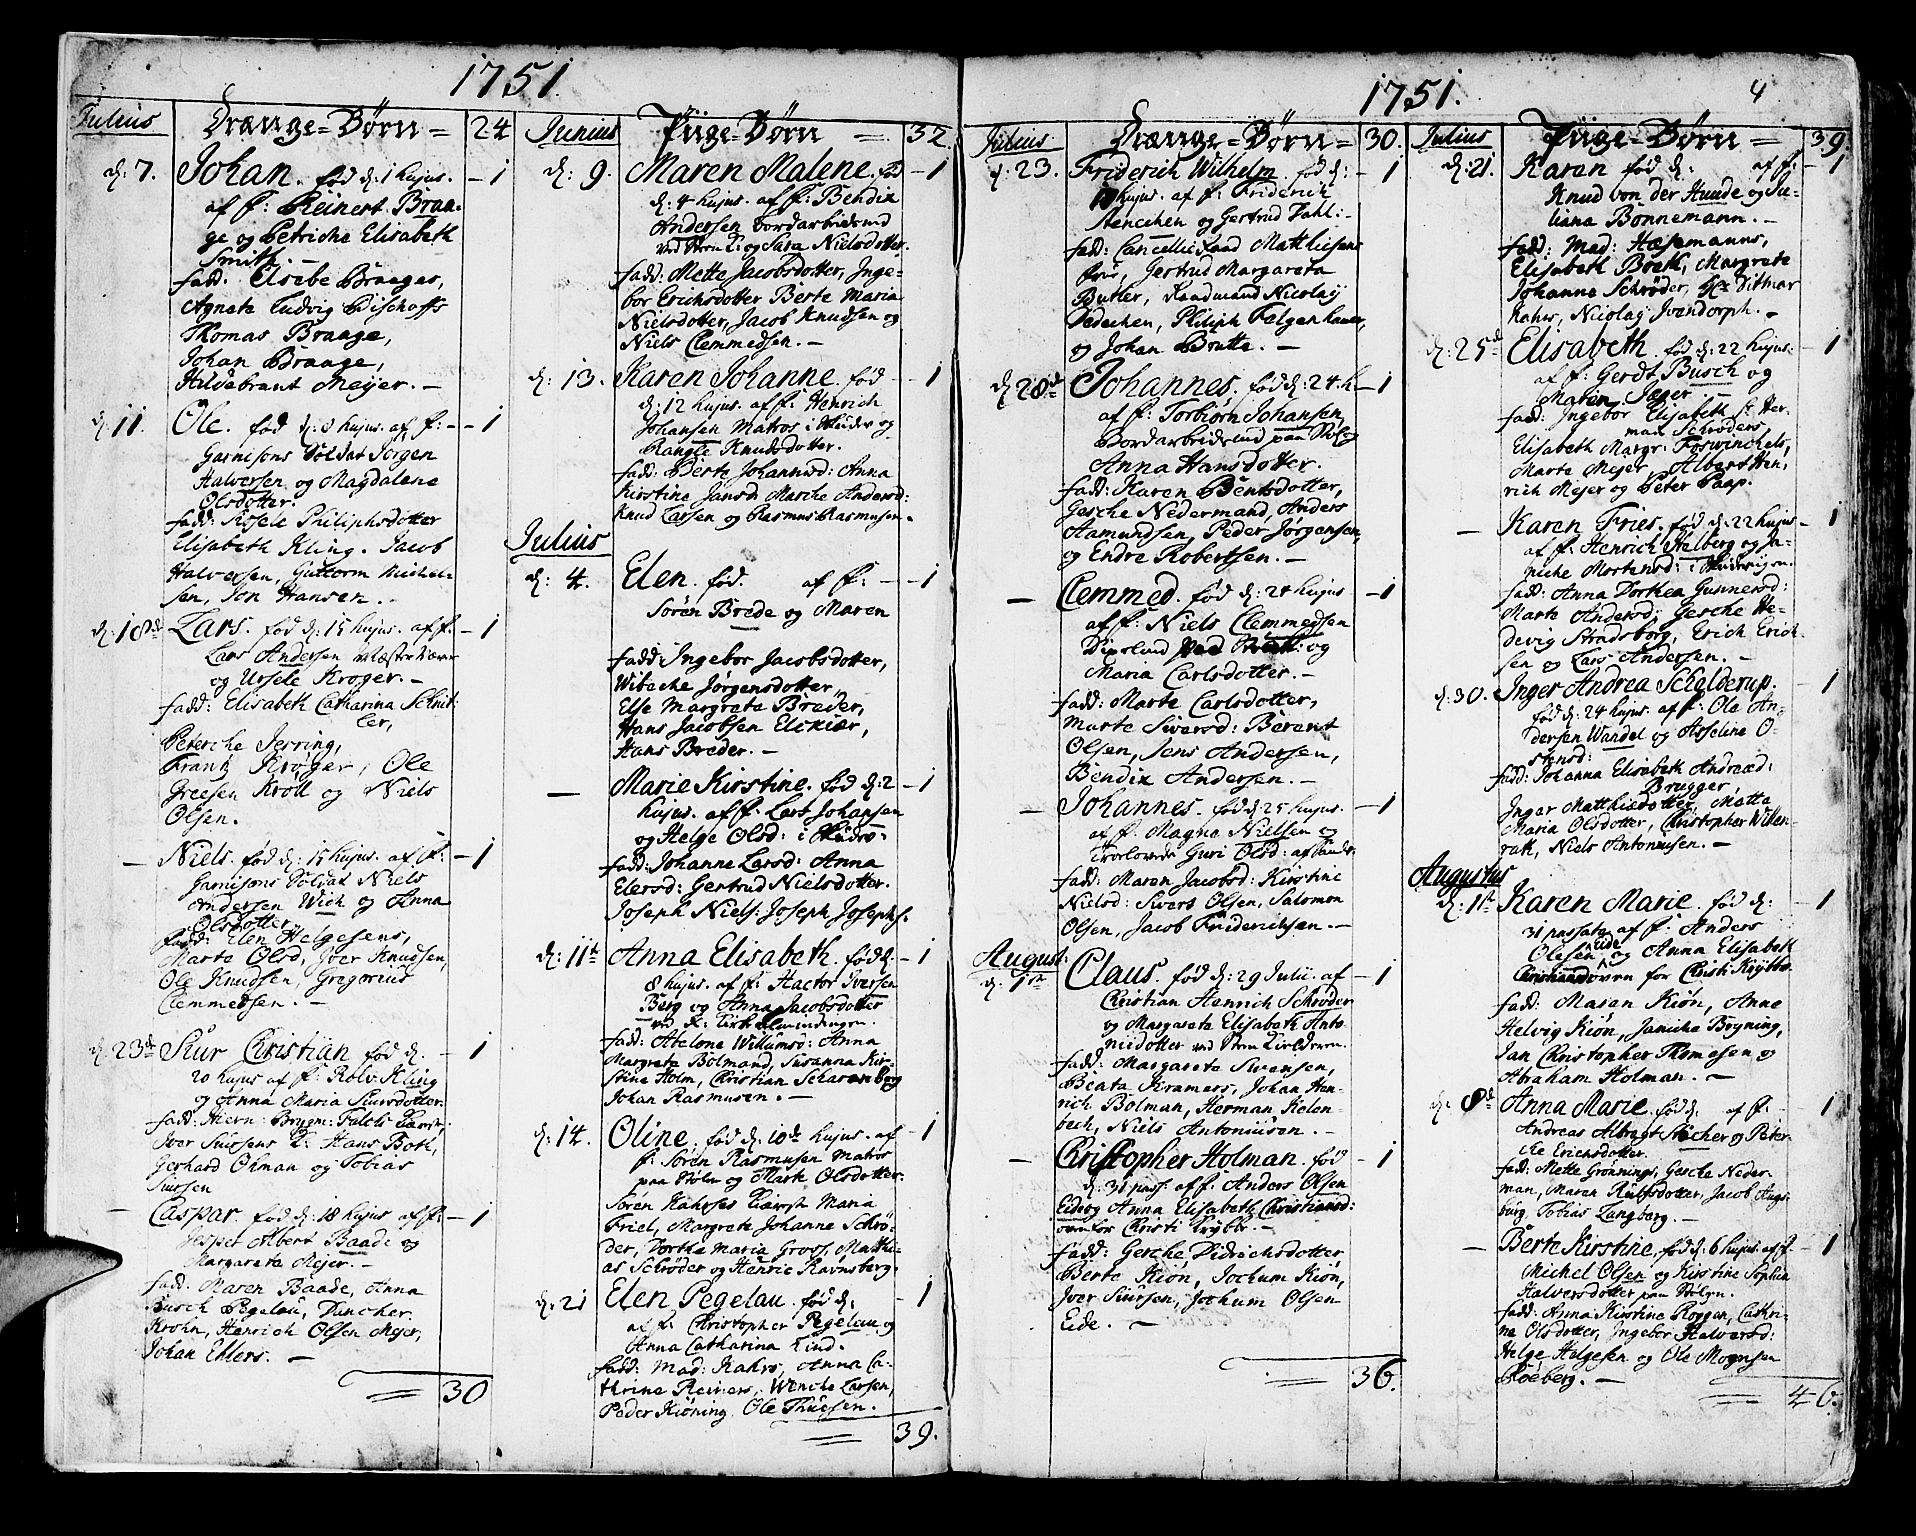 1751.
Julius
Drænge-Børn =
24
d: 7.
Johan. fød d: 1 hujus.
1
af f: Reinert Braa-
ge og Petriche Elisabeth
Smith. -
fadd: Elsebe Braages,
Agneta Ludvig Bischoffs
Thomas Braage,
Johan Braage,
Hildebrant Meyer. -
d: 11.
Ole. fød d: 8 hujus. af f:
1
Garnisons Soldat Jørgen
Halversen og Magdalene
Olsdotter.
fadd: Rosele Philiphsdotter
Elisabeth Kling. Jacob
Halversen, Guttorm Michel-
sen, Jon Hansen. -
d: 18de
Lars. fød d: 15 hujus. af f:
1
Lars Andersen
og Ursele Krøger. -
fadd: Elisabeth Catharina Schnit-
ler,
Peterche Jerring,
Frantz Krøger, Ole
Greesen Kroll og Niels
Olsen.
-
Niels. fød d: 15 hujus. af f:
1
Garnisons Soldat Niels
Andersen Wich og Anna
Olsdotter.
fadd: Elen Helgesens,
Marte Olsd, Iver Knudsen,
Ole Knudsen, Gregorius
Clemmedsen. -
d: 23de
Siur Christian fød d.
1
20 hujus af f: Rolv Kling
og Anna Maria Siursdotter.
fadd: Brygm: Falchs
Iver Siursens K: Hans Both,
Gerhard Ohman og Tobias
Siursen
-
Caspar. fød d: 18 hujus af f:
1
Jesper Albert Baade og
Margareta Meyer. -
fadd: Maren Baade, Anna
Busch Pegelau, Dancher
Krohn, Henrich Olsen Meyer,
Johan Ehlers. -
30
Junius
Piige-Børn =
32.
d: 9.
Maren Malene. fød
1
d: 4 hujus. af f: Bendix
Andersen
og Sara Nielsdotter.
fadd: Mette Jacobsdotter, Inge-
bor Erichsdotter Berte Maria
Nielsdotter, Jacob Knudsen og
Niels Clemmedsen. -
d: 13.
Karen Johanne. fød
1
d: 12 hujus. af f: Henrich
Johansen Matros i og
Rangle Knudsdotter.
fadd: Berte Johannsd: Anna
Kirstine Jansd Marche Andersd:
Knud Larsen og Rasmus Rasmusen.
Julius
d: 4.
Elen. fød. af f:
1
Søren Brede og Maren
fadd: Ingebor Jacobsdotter,
Wibeche Jørgensdotter
Else Margreta Breder,
Hans Jacobsen Elckiær,
Hans Breder. -
-
Marie Kirstine. fød d: 2
1
hujus. af f: Lars Johansen
og Helge Olsd: i
fadd: Johanne Larsd: Anna
Elersd: Gertrud Nielsdotter.
Joseph Niels: Joseph Josephs.
d: 11te
Anna Elisabeth. fød d.
1
8 hujus. af f: Hactor Iversen
Berg og Anna Jacobsdotter
fadd: Abelone Willumsd: Anna
Margreta Bolmand, Susanna Kir-
stine Holm, Christian Scharenberg
Johan Rasmusen. -
d: 14.
Oline. fød d: 10de hujus. af
1
f: Søren Rasmusen Matros
paa Stølen og Marte Olsdotter.
Søren Kahrses Maria
Friel, Margrete Johanne Schrø-
der, Dorthe Maria Gross, Matthi-
as Schrøder og Henric Ravnsberg.
d: 21
Elen Pegelau. fød d:
1
af f: Christopher Pegelau og
Anna Catharina Lind.
fadd: Mad: Kahrs, Anna Ca-
thrine Reiners, Wenche Larsen,
Peder Kiøning. Ole Thuesen.
39.
1751.
4
Julius
Drænge-Børn =
30.
d. 23.
Friderich Wilhelm. fød d:
1
hujus. af f: Friderich
og Gertrud Dahl:
fadd: Cancellie Raad Matthiesens
Frue, Gertrud Margareta
Butler, Raadmand Nicolaij
Vedechen, Philiph Felgenhauer,
og Johan Brutte. -
d: 28de
Johannes. fød d: 24 h.
1
af f: Torbiørn Johansen
og
Anna Hansdotter.
fadd: Karen Bentsdotter,
Gesche Nedermand, Anders
Aamundsen, Peder Jørgensen,
og Endre Robertsen. -
-
Clemmed. fød d: 24 hujus
1
af f: Niels Clemmedsen
og
Maria Carlsdotter. -
fadd: Marte Carlsdotter,
Marte Siversd: Berent
Olsen, Jens Andersen,
Bendix Andersen. -
-
Johannes. fød d: 25 hujus.
1
af f. Magne Nielsen og
Trorlovede Guri Olsd:
fadd: Maren Jacobsd: Kirstine
Nielsd: Sivert Olsen, Salomon
Olsen, Jacob Friderichsen. -
August:
d. 1te
Claus. fød d: 29 Julii. af
1
Christian Henrich Schrøder
og Margareta Elisabeth Anto-
niidotter
fadd: Margareta Swensen,
Beata Kramers, Johan Hen-
rich Bolman, Herman Kelen-
bech, Niels Antoniusen. -
-
Christopher Holman. fød
1
d: 31 pass: af f. Anders Olsen
Eide og Anna Elisabeth Christiansd:
Christi Krybbe. -
fadd: Gersche Didrichsdotter
Berte Kiøn, Jochum Kiøn,
Iver Siursen, Jochum Olsen
Eide. -
36.
Julius
Piige-Børn =
39.
d: 21.
Karen fød d: af f:
1
Knud von der Hunde og Ju-
liana Bønnemann. -
fadd: Mad: Hasemanns,
Elisabeth Breth, Margrete
Johanne Schrøder, Hr: Ditmar
Kahrs, Nicolay Ivendorph. -
d: 25de
Elisabeth. fød d: 22 hujus:
1
af f: Gerdt Busch og
Maren Seger. -
fadd: Ingebor Elisabeth Sr: Her-
man Schrøders,
Elisabeth Margr: Foswinckels,
Marte Mejer, Albert Hen-
rich Mejer og Peter Paap.
-
Karen Fries. fød d: 22 hujus
1
af f: Henrich Helberg og Ja-
niche Mortensd: i
fadd: Anna Dorthea Gunnersd:
Marte Andersd: Gesche He-
devig Stradsborg, Erich Erich-
sen og Lars Andersen. -
d: 30.
Inger Andrea Schelderup.
1
fød d: 24 hujus. af f: Ole An-
dersen Wandel og Asseline O-
stensd:
fadd: Johanna Elisabeth Andreæd:
Brugger,
Inger Matthisdotter, Mette
Maria Olsdotter, Christopher Willen-
rath, Niels Antoniusen. -
Augustus
d: 1te
Karen Marie. fød d:
1
31 passato af f: Anders
Olesen Eide og Anna Elisabeth
for Christi Krybbe.
fadd: Maren Kiøn, Anne
Helvig Kiøn, Janicha Bryning,
Jan Christopher Thomesen og
Abraham Holman. -
d. 8de
Anna Marie. fød d: af f:
1
Andreas Albregt Støcher og Peter-
che Erichsdotter.
fadd: Mette Grønnings, Gesche Neder-
man, Maren Rulfsdotter, Jacob Augs-
burg, Tobias Langberg. -
-
Berte Kirstine, fød d: 6 hujus. af f:
1
Michel Olsen og Kirstine Sophia
Halversdotter paa Stølen.
fadd: Anna Kirstine Roggen, Cathri-
ne Olsdotter, Ingebor Halversd:
Helge Helgesen og Ole Mognsen
Roeberg. -
46.